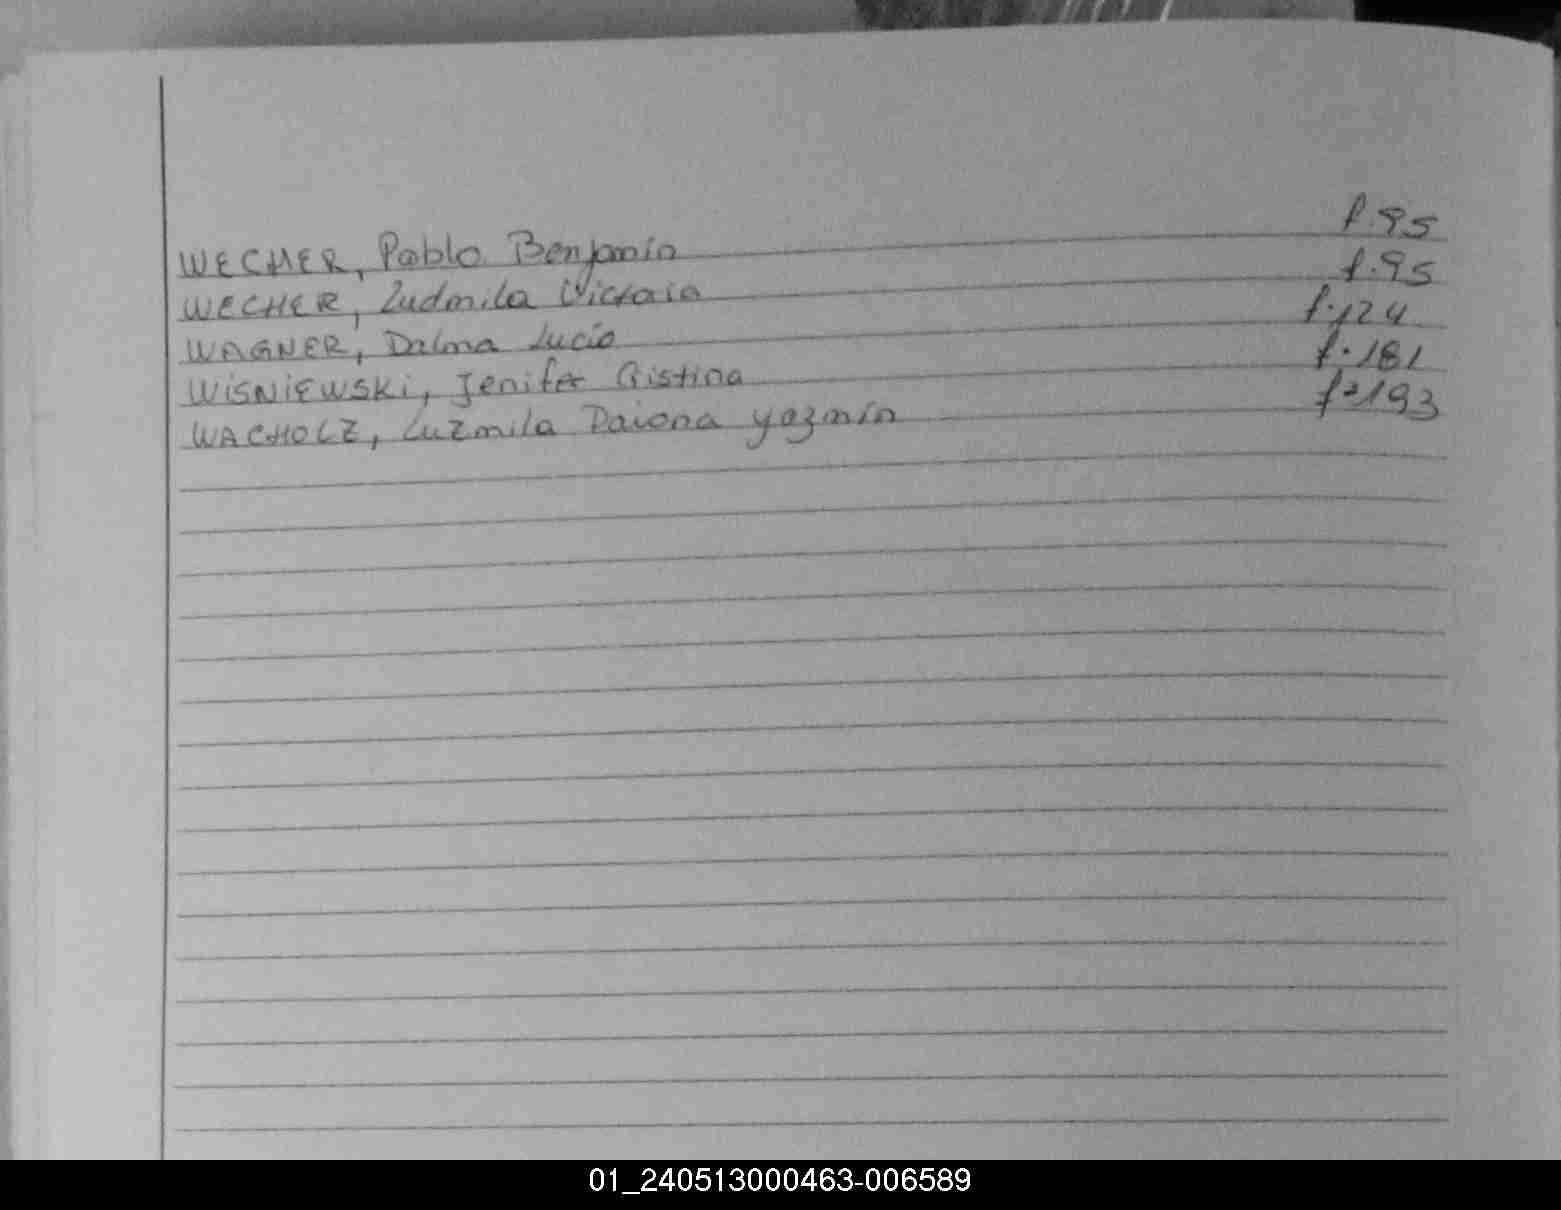 WECHER, Pablo Benjamín f. 95
WECHER, Ludmila Victoria f. 95
WAGNER, Dalma Lucía f. 124
WiSNiEWSKi, Jenifer Cristina f. 181
WACHOLZ, Luzmila Daiana yazmín fº 193
01_240513000463-006589